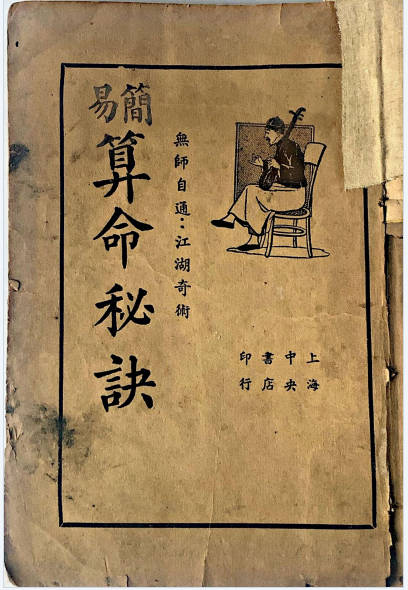 簡易
算命秘訣
無師自通：江湖奇術
上海
中央
書店
印行